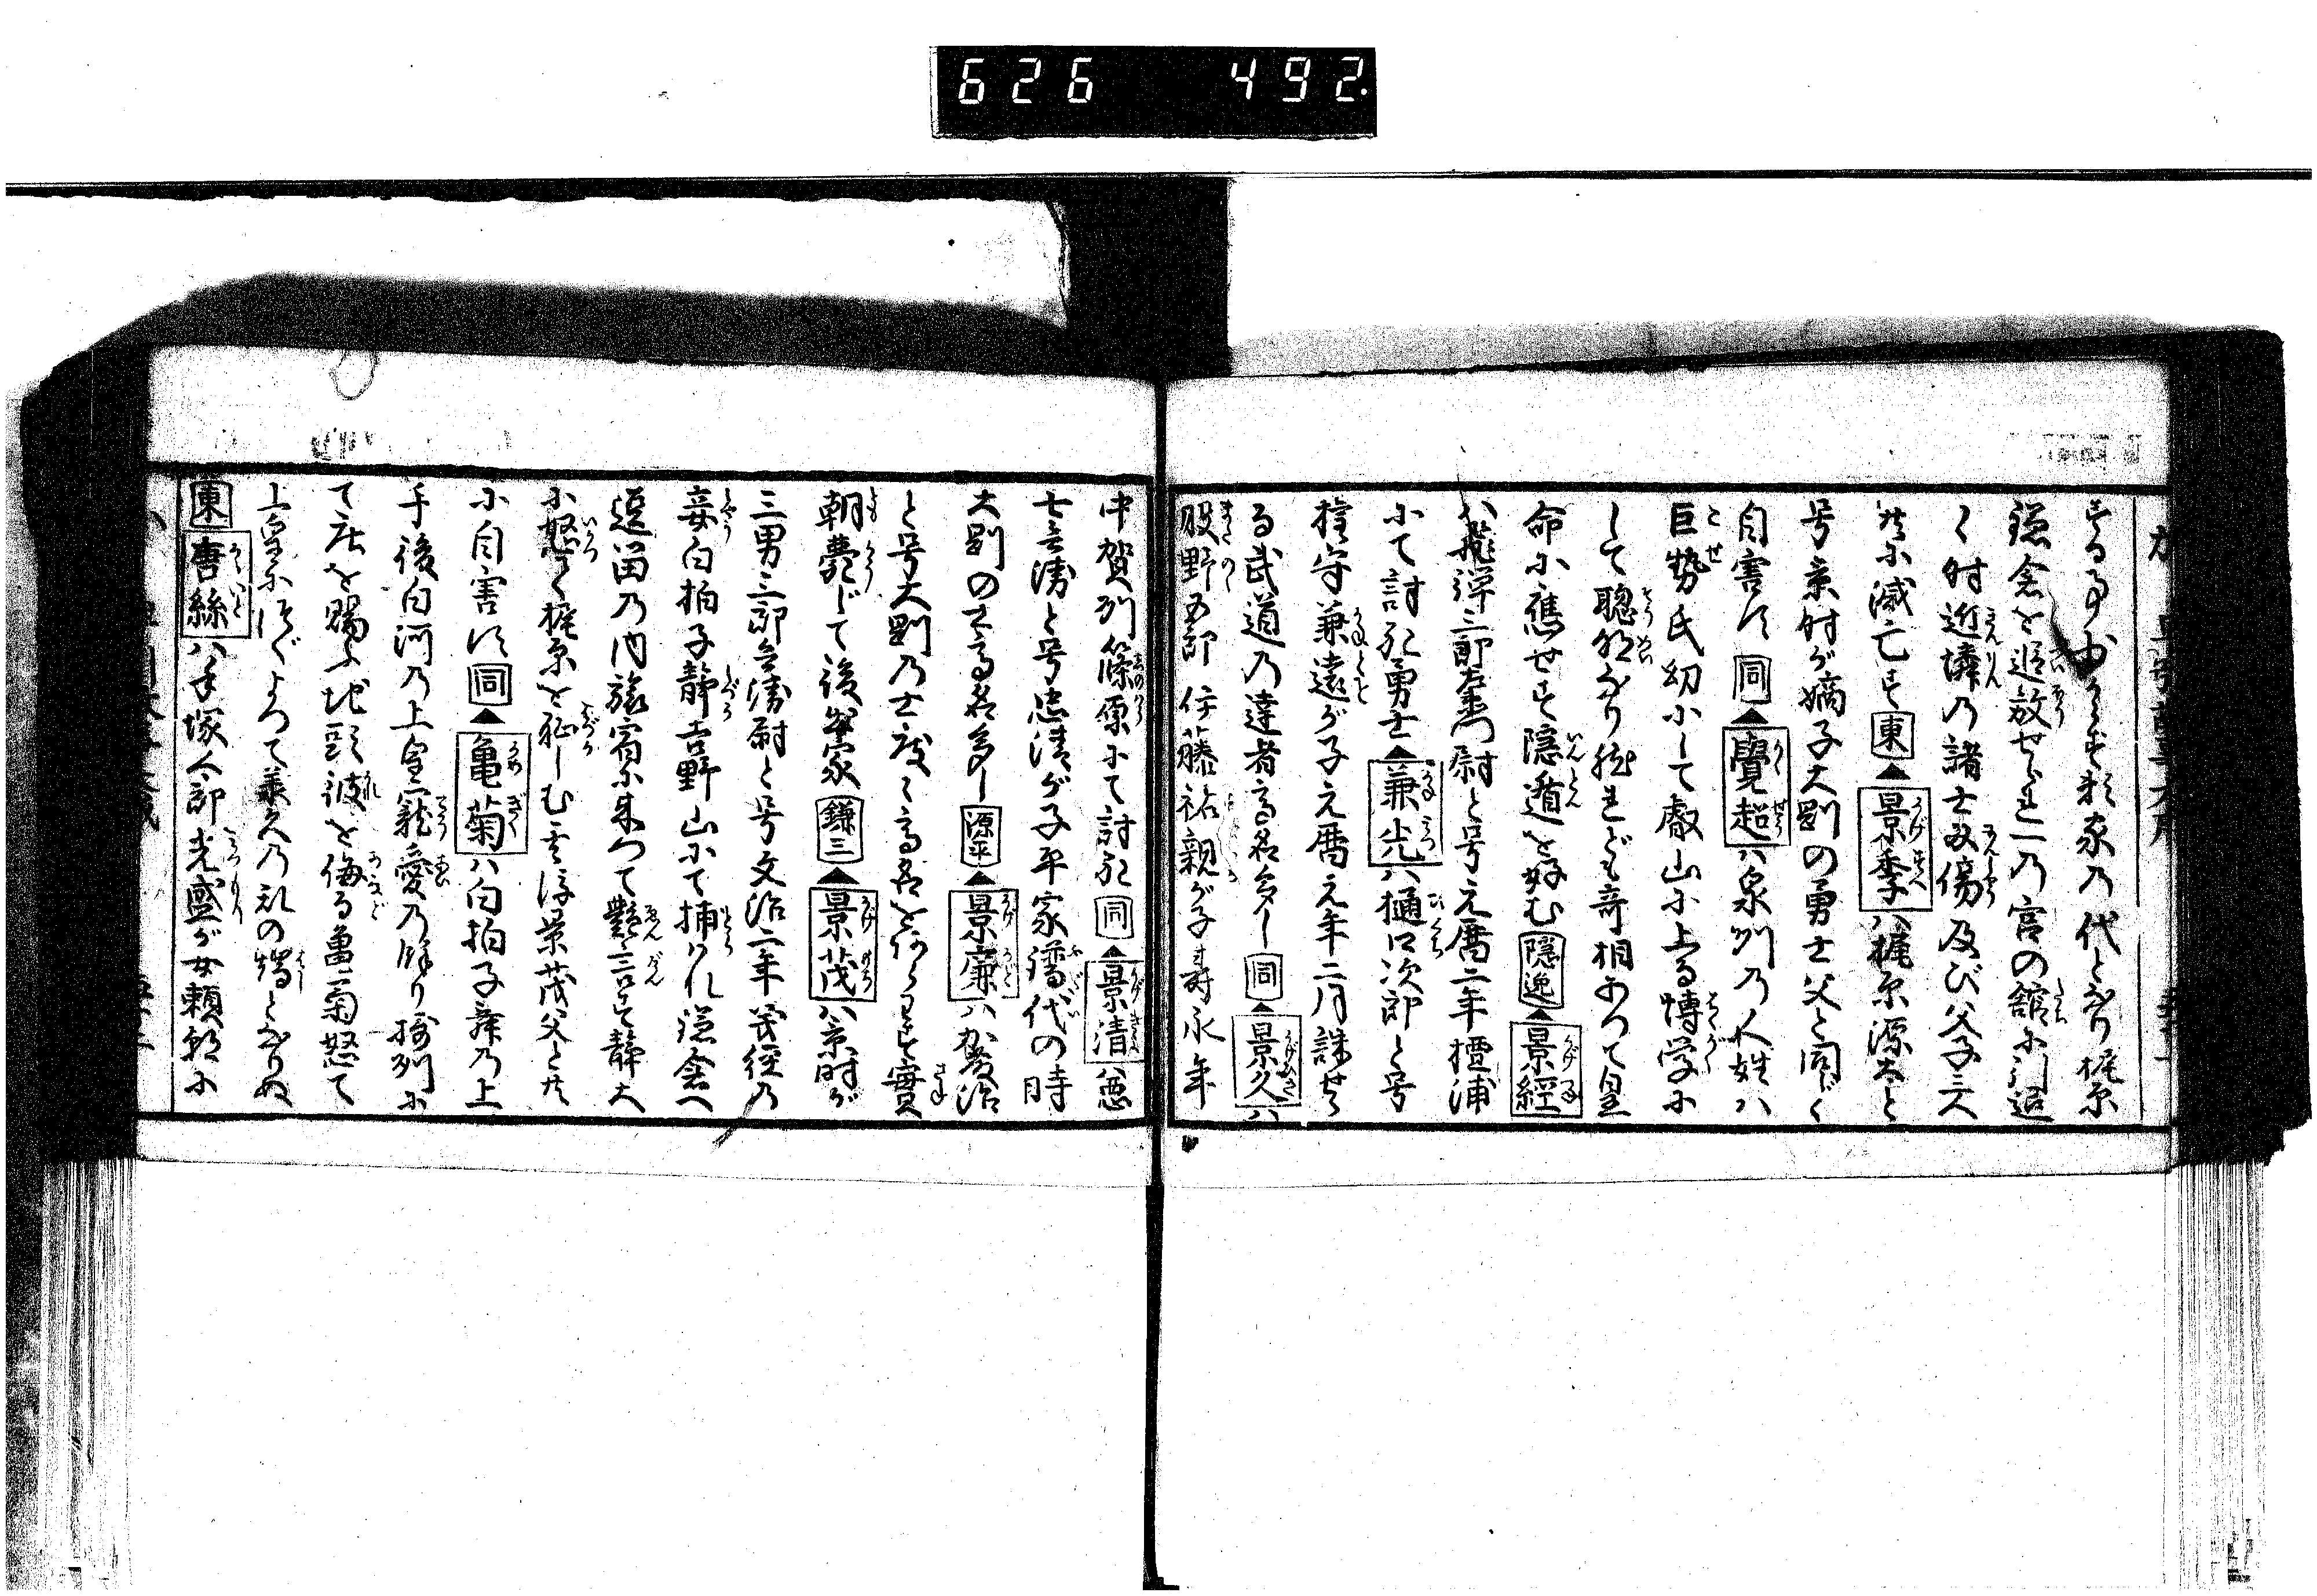 626 492.
する事少からず頼家乃代となり梶原
鎌倉を追放せられ一乃宮の舘に引退
く時近隣乃諸士及び父子三人
共に滅亡す 東 ▲景季ハ梶原源太と
号景時が嫡子大剛の勇士父と同じく
自害ス 同 ▲覺超ハ泉州乃人姓ハ
巨勢氏幼小して叡山に上る博学に
して聰明なり然れども奇相あつて皇
命に應せず隠遁を好む 隠逸 ▲景經
ハ飛弾三郎左衛門尉と号元暦二年壇浦
にて討死勇士▲兼光ハ樋口次郎と号
権守兼遠が子元暦元年二月誅せら
る武道乃達者高名多し 同 ▲景久ハ
股野五郎伊藤祐親が子壽永年
中賀州篠原にて討死 同 ▲景清ハ悪
七兵衛と号忠清が子平家譜代の時
大剛の士高名多し 源平 ▲景廉ハ加藤治
と号大剛乃士度々高名を
朝薨じて後出家 鎌三 ▲景茂ハ景時が
三男三郎兵衛尉と号文治二年義経乃
妾白拍子静吉野山にて捕られ鎌倉へ
逗留乃内旅宿に来つて艶言す静大
に怒て梶原を耻しむ其後景茂父と共
に自害ス 同 ▲亀菊ハ白拍子舞乃上
手後白河乃上皇寵愛乃餘り摂州に
て庄を賜ふ地頭彼を侮る亀菊怒て
上皇によつて承久乃乱の端となりぬ
東 唐絲ハ手塚太郎光盛が女頼朝に